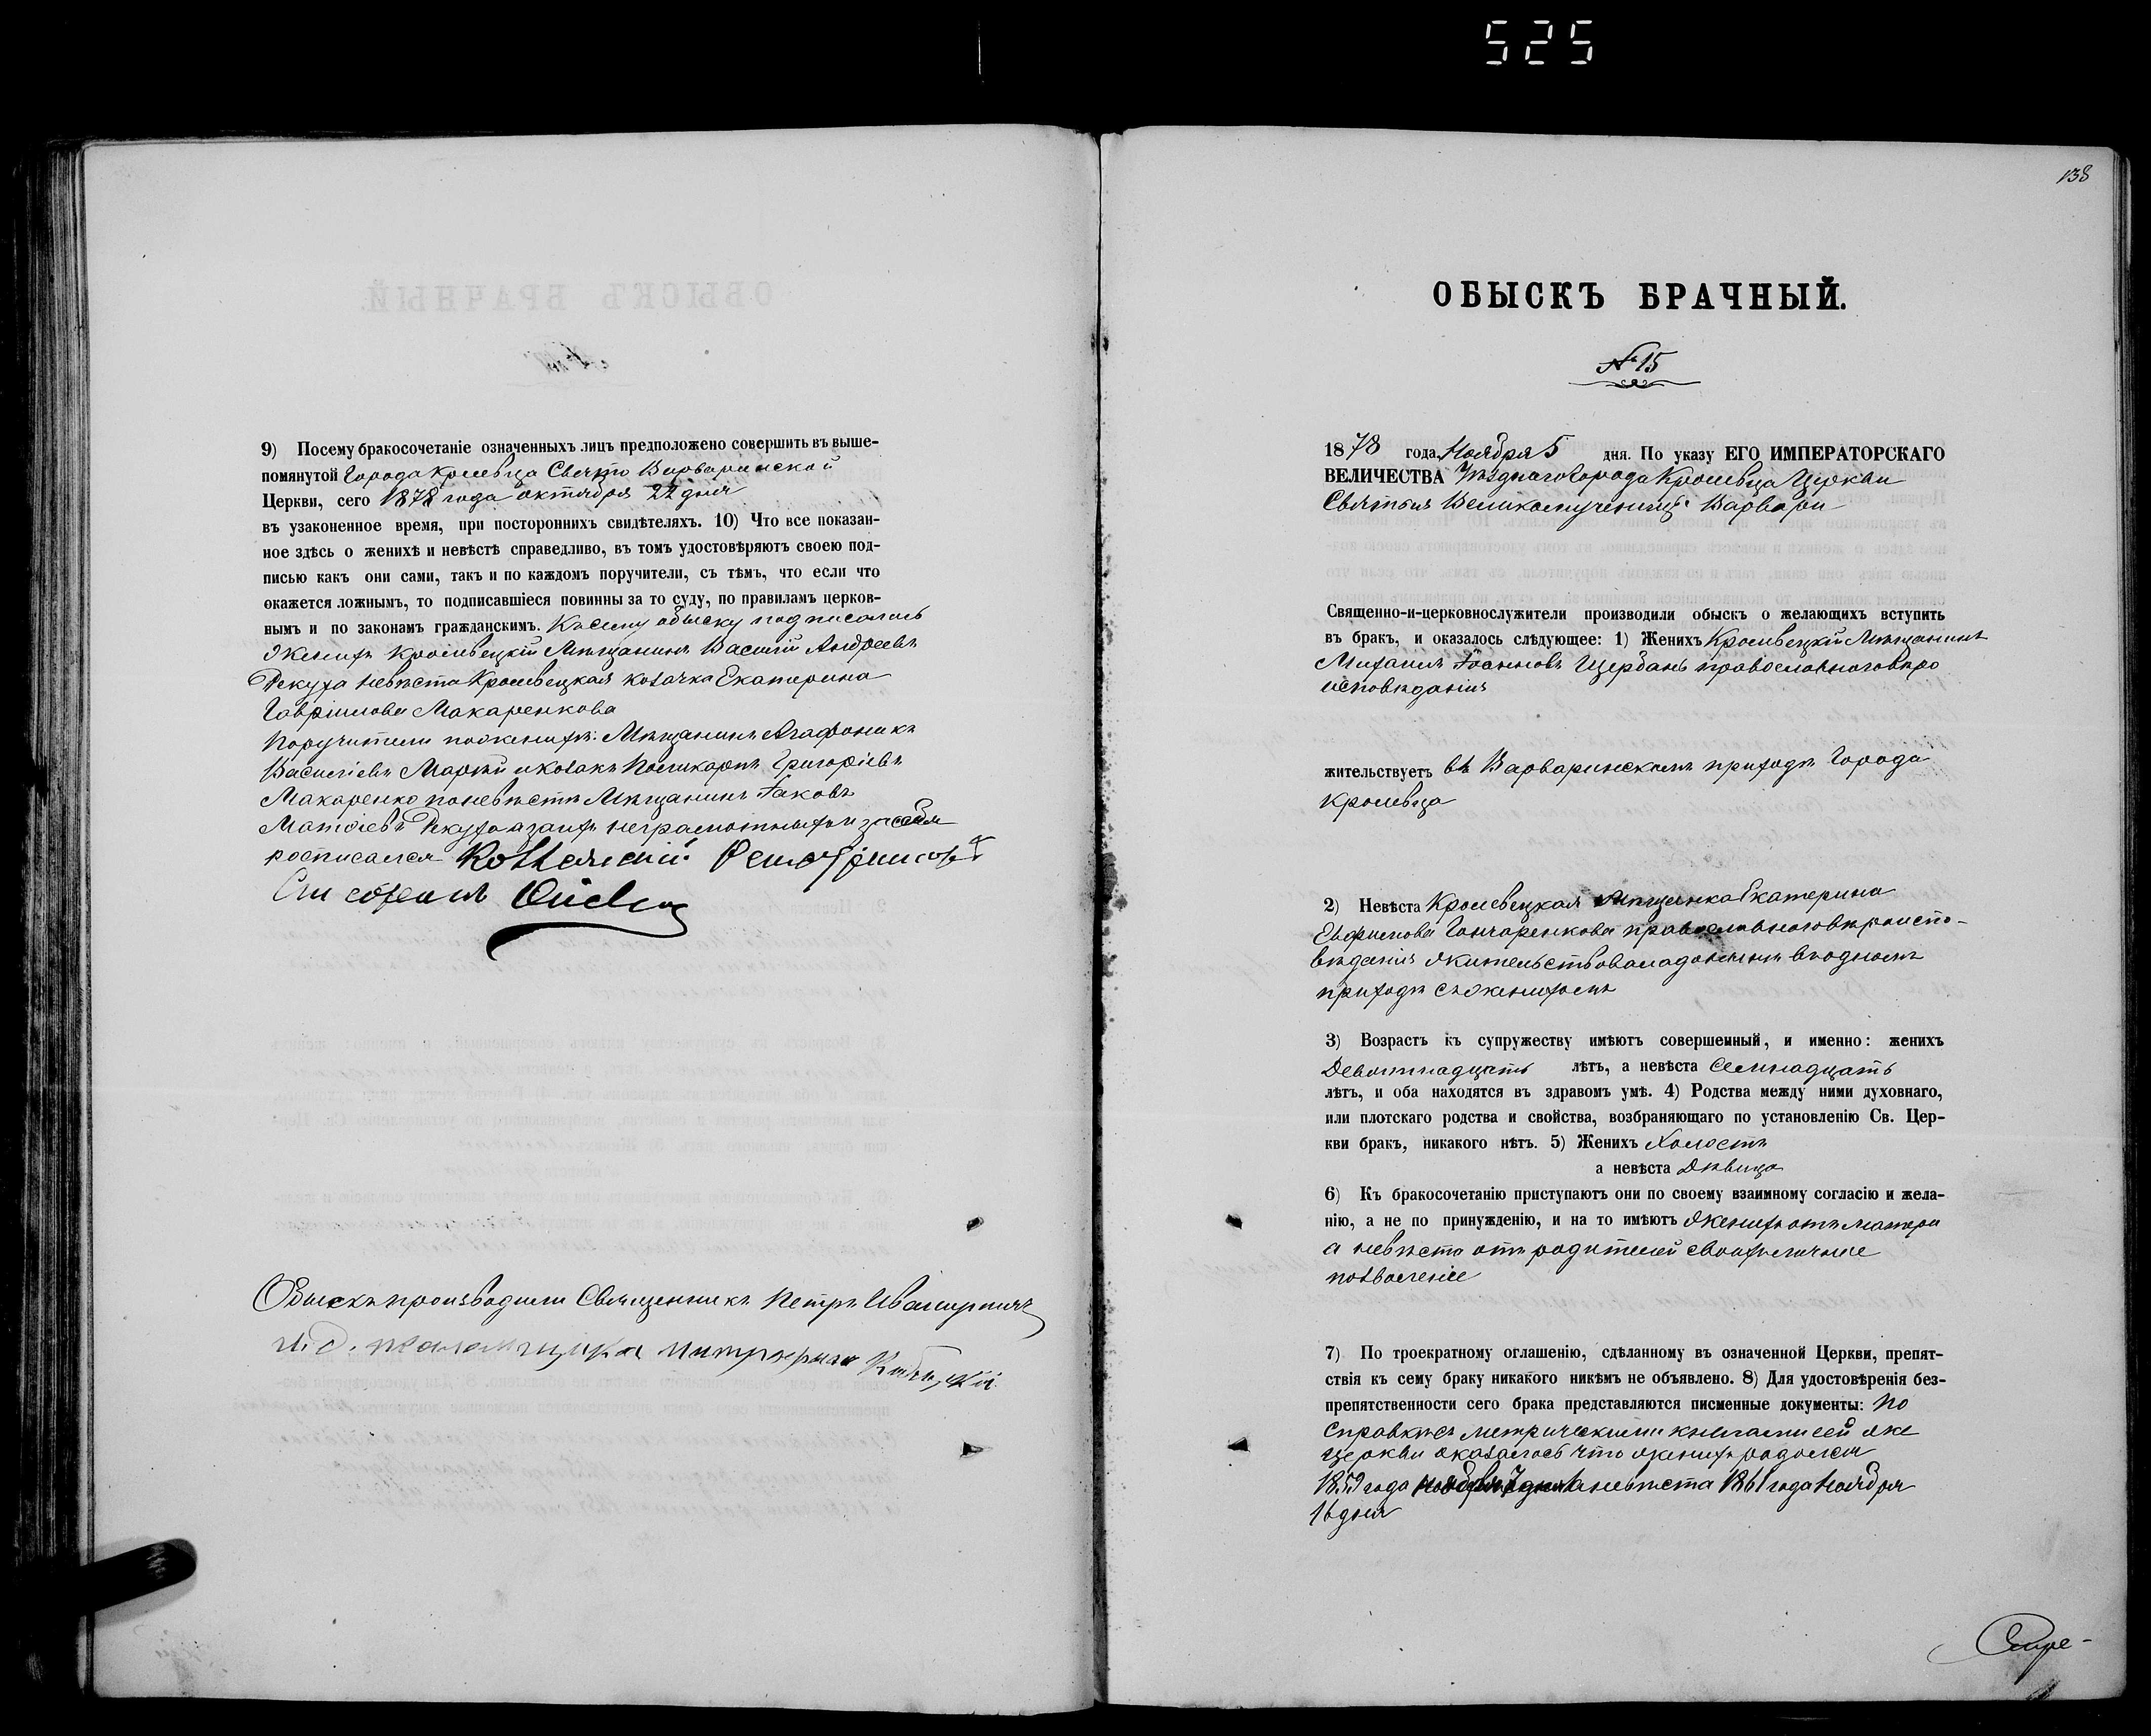 525
9) Посему бракосочетаніе означенныхъ лицъ предположено совершить въ выше-
помянутой Города Кролевца Свято Варваринской
Церкви, сего 1878 года октября 22 дня
въ узаконенное время, при постороннихъ свидѣтеляхъ. 10) Что все показан-
ное здѣсь о женихѣ и невѣстѣ справедливо, въ томъ удостовѣряютъ своею под-
писью какъ они сами, такъ и по каждомъ поручители, съ тѣмъ, что если что
окажется ложнымъ, то подписавшіеся повинны за то суду, по правиламъ церков-
нымъ и по законамъ гражданскимъ. К сему обыску подписались
Женихъ Кролевецкій Мѣщанинъ Василій Андреевъ
Рекуха невѣста Кролевецкая козачка Екатерина
Гавріилова Макаренкова
Поручители по женихѣ: Мѣщанинъ Агафоникъ
Василіевъ Маркій и козакъ Поликарпъ Григоріевъ
Макаренко по невѣстѣ Мѣщанинъ Іаковъ
Матѳіевъ Рекуха а за ихъ неграмотныхъ и за себя
росписался
Обыскъ производили Священникъ Петръ
и. д. псаломщика
138
ОБЫСКЪ БРАЧНЫЙ.
№ 15
1878 года Ноября 5 дня. По указу ЕГО ИМПЕРАТОРСКАГО
ВЕЛИЧЕСТВА Уѣзднаго Города Кролевца Церкви
Святыя Великомученицы Варвары
Священно-и-церковнослужители производили обыскъ о желающихъ вступить
въ бракъ, и оказалось слѣдующее: 1) Женихъ Кролевецкій Мѣщанинъ
Михаилъ Іоанновъ Щербань православнаго вѣро
исповѣданія
жительствуетъ въ Варваринскомъ приходѣ Города
Кролевца
2) Невѣста Кролевецкая Мѣщанка Екатерина
Евфимова Гончаренкова православнаго вѣроиспо-
вѣданія жительствовала донынѣ въ одномъ
приходѣ съ женихомъ
3) Возрастъ къ супружеству имѣютъ совершенный, и именно: женихъ
Девятнадцать лѣтъ, а невѣста семнадцать
лѣтъ, и оба находятся въ здравомъ умѣ. 4) Родства между ними духовнаго,
или плотскаго родства и свойства, возбраняющаго по установленію Св. Цер-
кви бракъ, никакого нѣтъ. 5) Женихъ Холостъ
а невѣста Дѣвица
6) Къ бракосочетанію приступаютъ они по своему взаимному согласію и жела-
нію, а не по принужденію, и на то имѣютъ Женихъ отъ матери
а невѣста отъ родителей своихъ личное
позволеніе
7) По троекратному оглашенію, сдѣланному въ означенной Церкви, препят-
ствія къ сему браку никакого никѣмъ не объявлено. 8) Для удостовѣренія без-
препятственности сего брака представляются писменные документы: По
справкѣ съ метрическими книгами сей же
церкви оказалось что женихъ родился
1859 года ноября 7 дня а невѣста 1861 года Ноября
16 дня